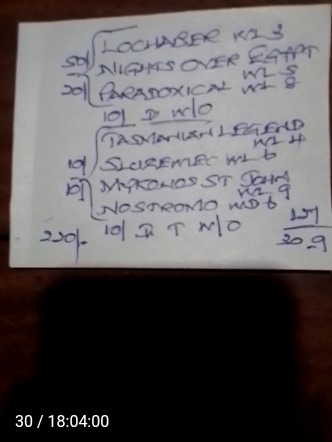 LOCHABER WL 3
50/ NIGHTS OVER EGYPT
WL 5
20/ PARADOXICAL WL 8
10/ D W/O
TASMANIAN LEGEND
WL 4
10/ WL 6
10/ MYKONOS ST JOHN
WL 9
NOSTROMO WD 6
220/- 10/ D T W/O
20-9
30 / 18:04:00